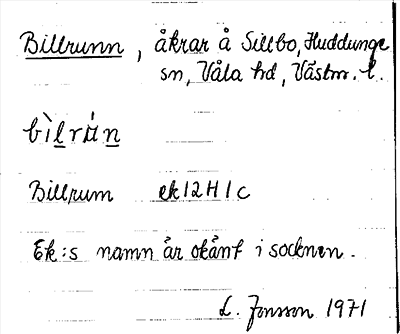 Billrunn, åkrar å Sillbo, Huddunge
sn, Våla hd, Västm. l.
bìlrún
Billrum ek 12 H 1 c
Ek:s namn är okänt i socknen.
L. Jonsson 1971